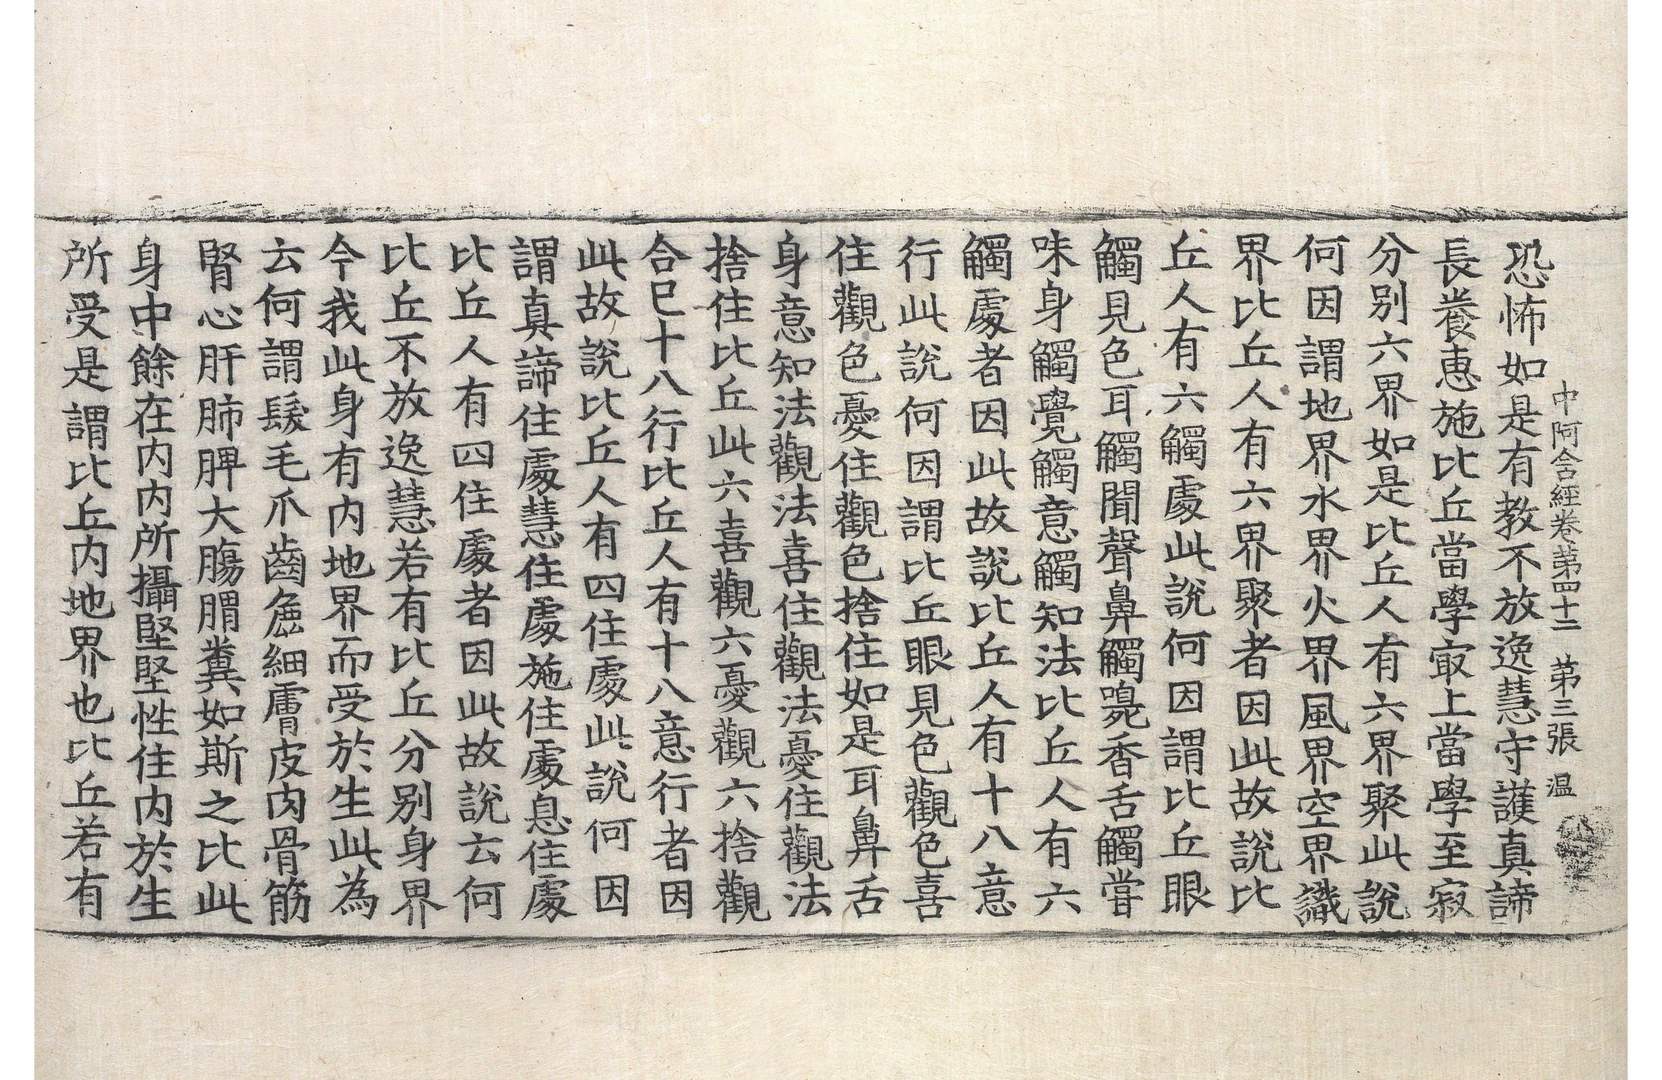 中阿含經卷第四十二 第三張 温
恐怖如是有教不放逸慧守護真諦
長養惠施比丘當學㝡上當學至寂
分别六界如是比丘人有六界聚此說
何因謂地界水界火界風界空界識
界比丘人有六界聚者因此故說比
丘人有六觸處此說何因謂比丘眼
觸見色耳觸聞聲鼻觸嗅香舌觸甞
味身觸覺觸意觸知法比丘人有六
觸處者因此故說比丘人有十八意
行此說何因謂比丘眼見色觀色喜
住觀色憂住觀色捨住如是耳鼻舌
身意知法觀法喜住觀法憂住觀法
捨住比丘此六喜觀六憂觀六捨觀
合巳十八行比丘人有十八意行者因
此故說比丘人有四住處此說何因
謂真諦住處慧住處施住處息住處
比丘人有四住處者因此故說云何
比丘不放逸慧若有比丘分别身界
今我此身有内地界而受於生此為
云何謂髮毛爪齒麁細膚皮肉骨筋
腎心肝肺脾大膓胃糞如斯之比此
身中餘在内内所攝堅堅性住内於生
所受是謂比丘内地界也比丘若有